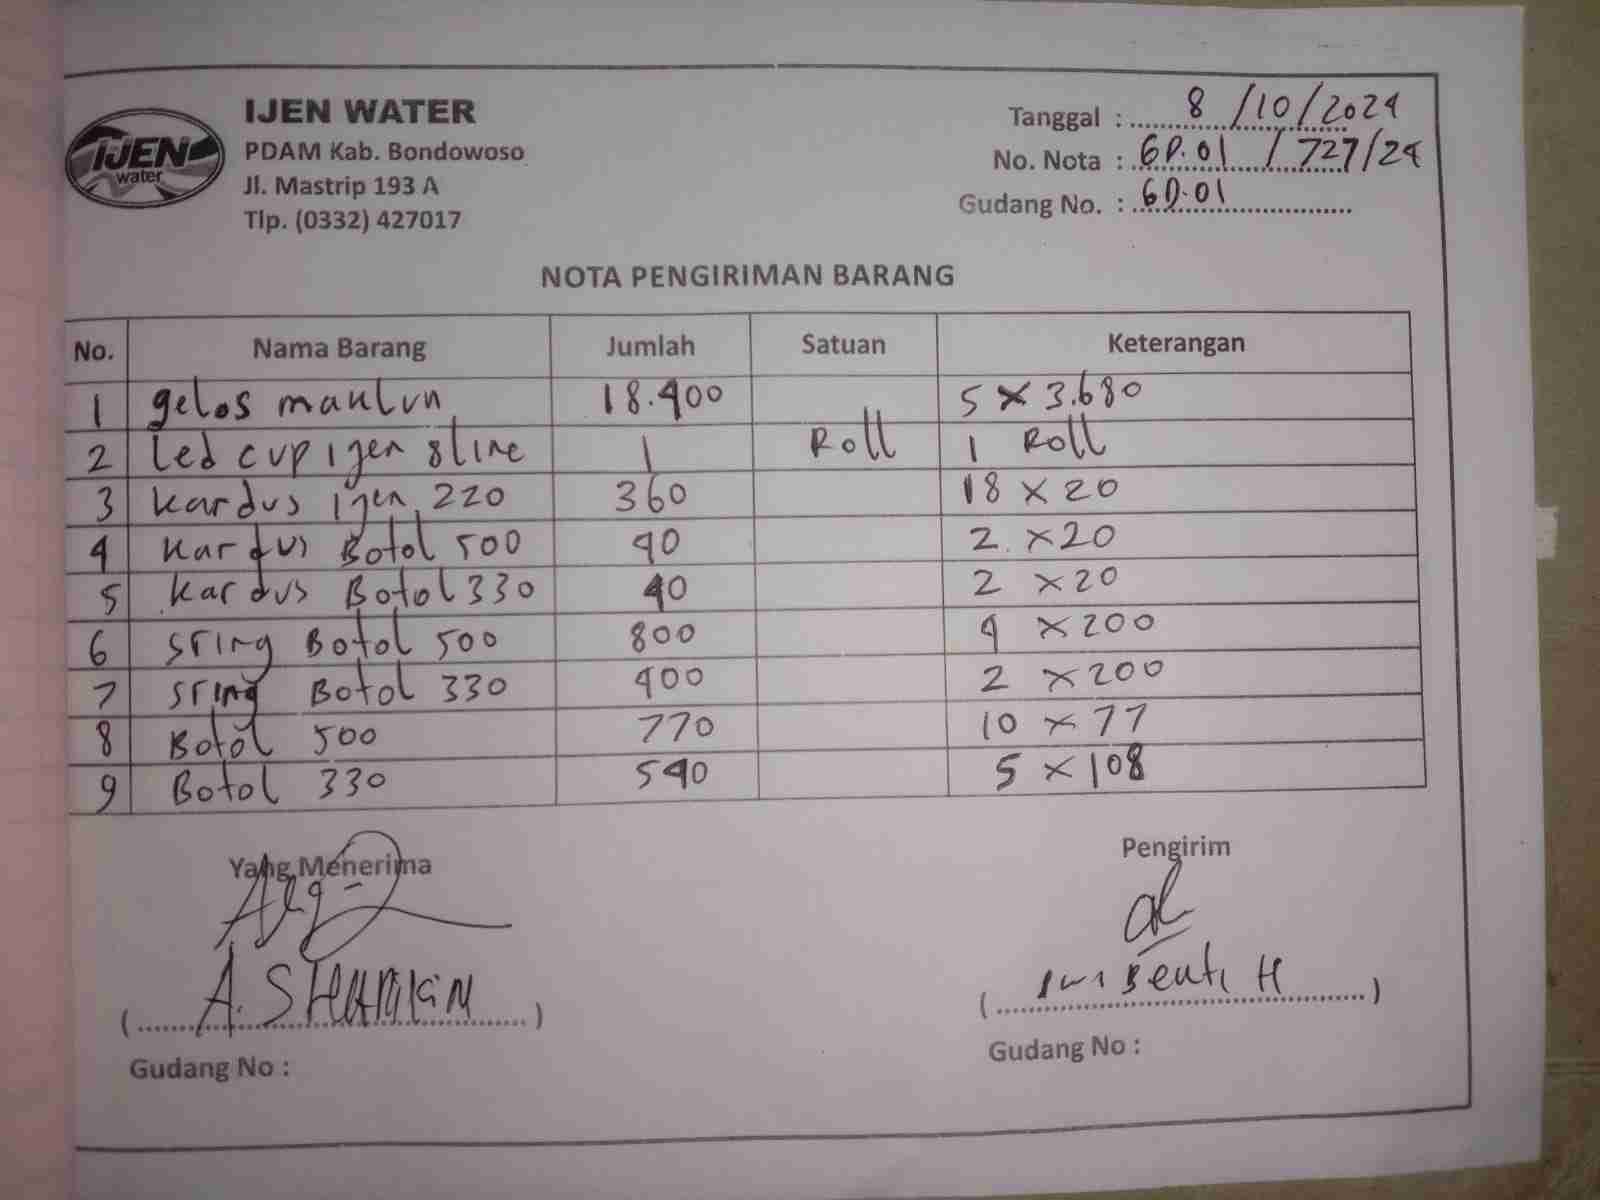 IJEN
water
IJEN WATER
PDAM Kab. Bondowoso
Jl. Mastrip 193 A
Tlp. (0332) 427017
Tanggal : 8 /10/2024
No. Nota : GD.01 / 727/24
Gudang No. : GD.01
NOTA PENGIRIMAN BARANG
No. Nama Barang Jumlah Satuan Keterangan
1 gelos maklun 18.400 5 x 3.680
2 led cup ijen 8 line 1 Roll 1 Roll
3 kardus ijen 220 360 18 x 20
4 kardus Botol 500 40 2 x 20
5 kardus Botol 330 40 2 x 20
6 sring Botol 500 800 4 x 200
7 sring Botol 330 400 2 x 200
8 Botol 500 770 10 x 77
9 Botol 330 540 5 x 108
Yang Menerima
Pengirim
( A. )
( H )
Gudang No :
Gudang No :